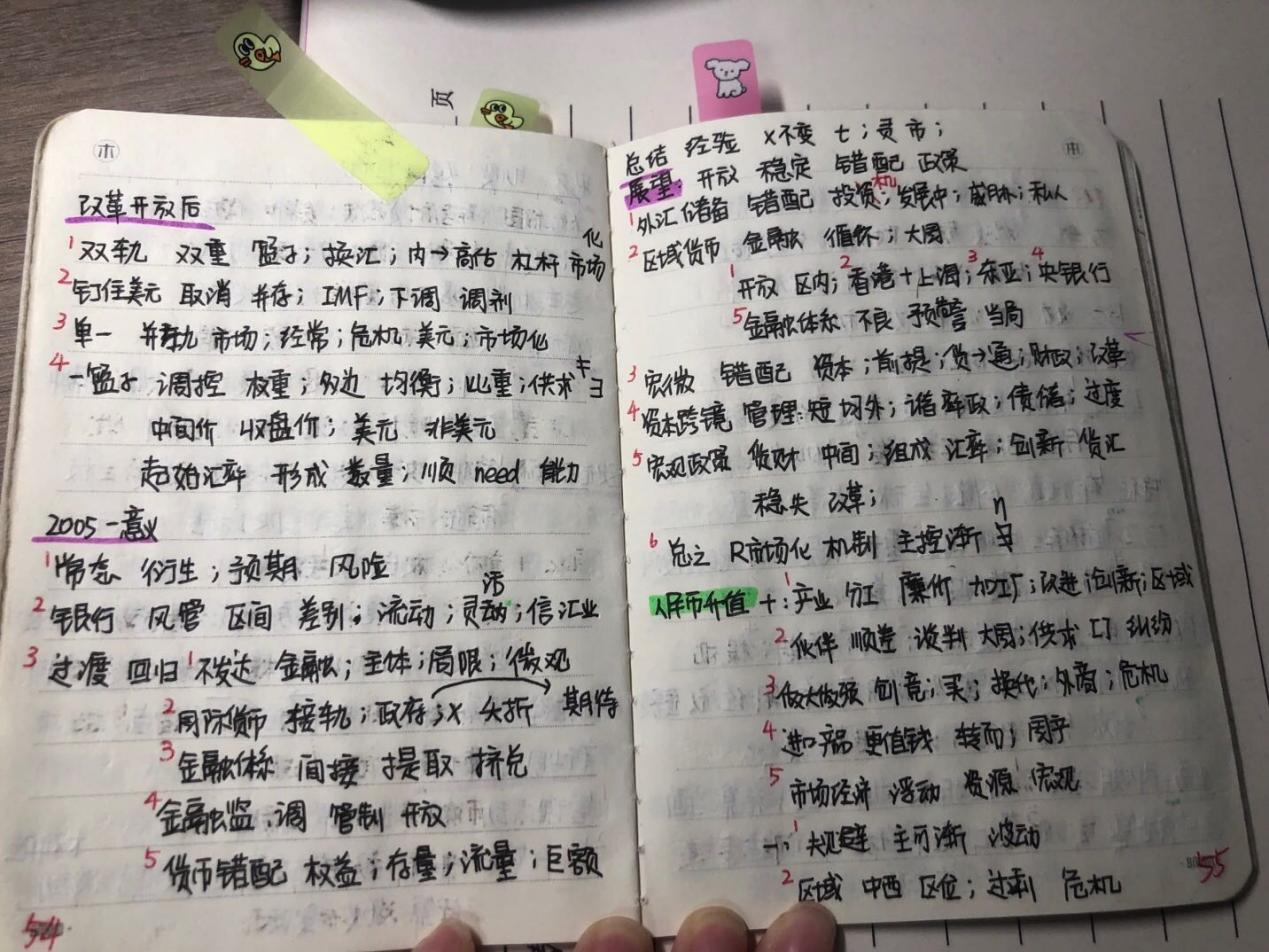 页
改革开放后
1 双轨 双重 篮子；换汇；内→高估 杠杆 市场化
2 钉住美元 取消 并存；IMF；下调 调剂
3 单一 并轨 市场；经常；危机 美元；市场化
4 一篮子 调控 权重；多边 均衡；比重；供求
中间价 收盘价；美元 非美元
起始汇率 形成 数量；顺 need 能力
2005－意义
1 常态 衍生；预期 风险
2 银行：风管 区间 差别；流动；灵活；信汇业
3 过渡 回归 1 不发达 金融；主体；局限；微观
2 国际货币 接轨；政府；x 夭折 期待
3 金融体称 间接 提取 挤兑
4 金融监.调 管制 开放
5 货币错配 权益；存量；流量；巨额
54
总结 经验 x不变 七；灵 市；
展望：开放 稳定 错配 政策
1 外汇储备 错配 投资机；发展中；私人
2 区域货币 金融 循环；大国
1 开放 区内；2 香港＋上海；3 东亚；4 央银行
5 金融体称 不良 预警 当局
3 宏微 错配 资本；前提；货→通；财政；改革
4 资本跨镜 管理：短 均外；谐 率政；债偿；过度
5 宏观政策 货财 中间；组成 汇率；创新 货汇
稳失 改革；
6 总之 R市场化 机制 主控渐 n
人民币升值 ＋：1 产业 分工 廉价 加工厂；改进 创新；区域
2 伙伴 顺差 谈判 大国；供求 口 纠纷
3 做大做强 创竞；买；换代；外商；危机
4 进口产品 更值钱 转而；周乎
5 市场经济 浮动 资源 宏观
－：1 规避 主可渐 波动
2 区域 中西 区位；过剩 危机
55